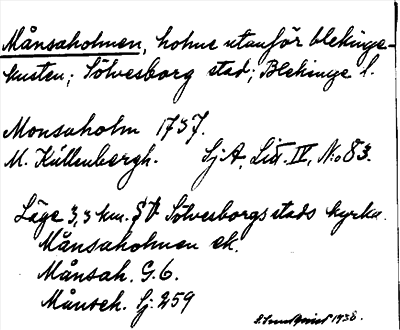 Månsaholmen, holme utanför blekinge-
kusten; Sölvesborg stad; Blekinge l.
Monsaholm 1737.
M. Kúllenbergh. Sj A, Litt. IV, No 83.
Läge 3,3 km. SV Sölvesborgs stads kyrka.
Månsaholmen ek.
Månsah. G.6.
Månseh. Sj: 259
1938.